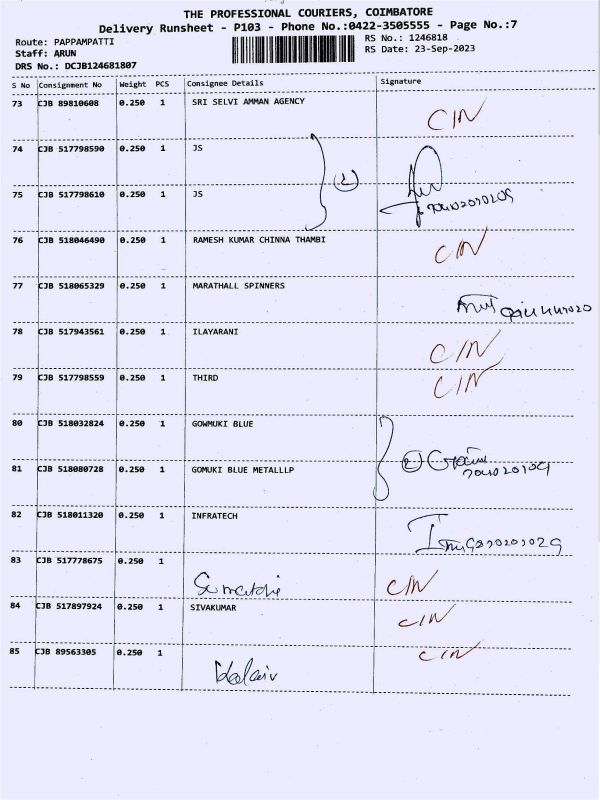 THE PROFESSIONAL COURIERS, COIMBATORE
Delivery Runsheet - P103 - Phone No.:0422-3505555 - Page No.:7
Route: PAPPAMPATTI RS No.: 1246818
Staff: ARUN RS Date: 23-Sep-2023
DRS No.: DCJB124681807
S No Consignment No Weight PCS Consignee Details Signature
73 CJB 89810608 0.250 1 SRI SELVI AMMAN AGENCY C/N
74 CJB 517798590 0.250 1 JS
2
75 CJB 517798610 0.250 1 JS
76 CJB 518046490 0.250 1 RAMESH KUMAR CHINNA THAMBI C/N
77 CJB 518065329 0.250 1 MARATHALL SPINNERS
78 CJB 517943561 0.250 1 ILAYARANI C/N
79 CJB 517798559 0.250 1 THIRD C/N
80 CJB 518032824 0.250 1 GOWMUKI BLUE
2
81 CJB 518080728 0.250 1 GOMUKI BLUE METALLLP
82 CJB 518011320 0.250 1 INFRATECH
83 CJB 517778675 0.250 1 C/N
84 CJB 517897924 0.250 1 SIVAKUMAR C/N
85 CJB 89563305 0.250 1 C/N